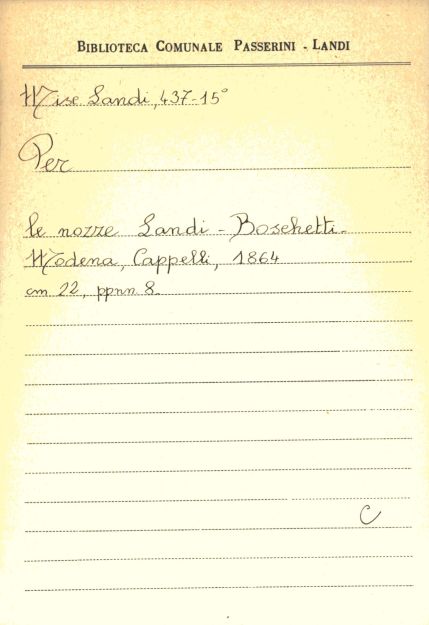 BIBLIOTECA COMUNALE PASSERINI - LANDI
Misc Landi, 437-15°
Per
le nozze Landi - Boschetti.
Modena, Cappelli, 1864
cm 22, ppnn 8.
C